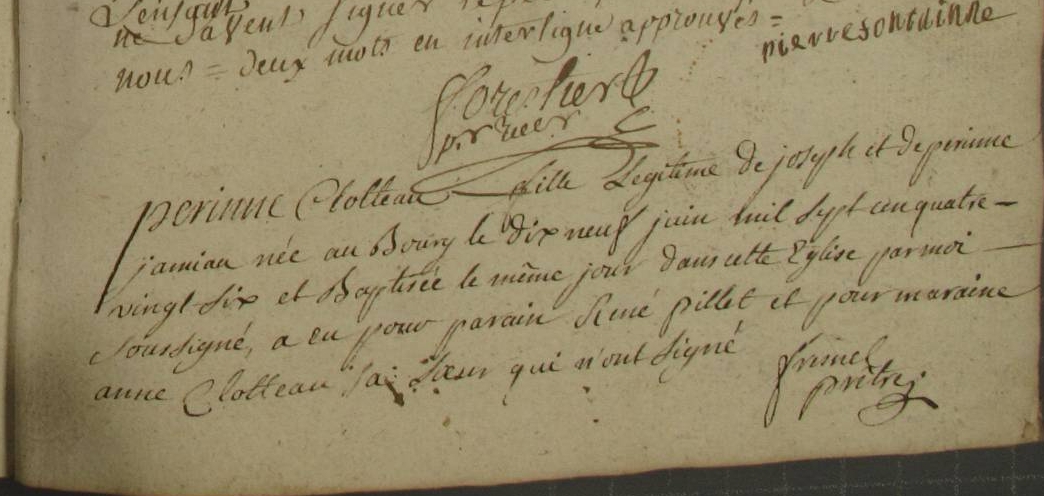 ne savent signer
nous = deux mots en interligne approuvés =
pierre fontainne
forestier
perinne Clotteau fille Legitime de joseph et de perinne
jamiau née au Bourg le dix neuf juin mil sept cen quatre-
vingt six et Baptisée le même jour dans cette Eglise par moi
soussigné, a eu pour parain René pillet et pour maraine
anne Clotteau sa sœur qui n'ont signé
frimel
prêtre